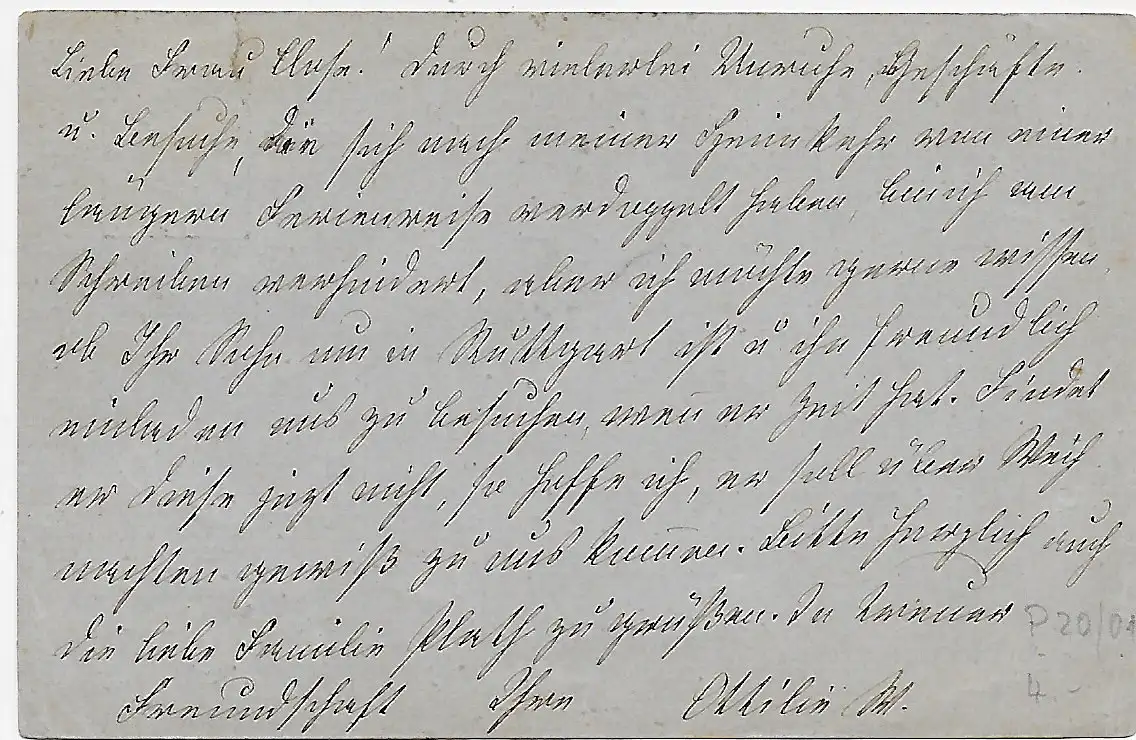 Liebe Frau Klose! Durch vielerlei Unruhe, Geschäfte
u. Besuche, die sich nach meiner Heimkehr von einer
längern Ferienreise verdoppelt haben, bin ich am
Schreiben verhindert, aber ich möchte gerne wissen,
ob Ihr Sohn nun in Stuttgart ist u. ihn freundlich
einladen uns zu besuchen, wen̄ er Zeit hat. Findet
er diese jezt nicht, so hoffe ich, er soll über Weih
nachten gewiß zu uns kom̄en. Bitte herzlich auch
die liebe Familie Plath zu grüßen. In treuer
Freundschaft Ihre Ottilie W.
P20/01
4.-